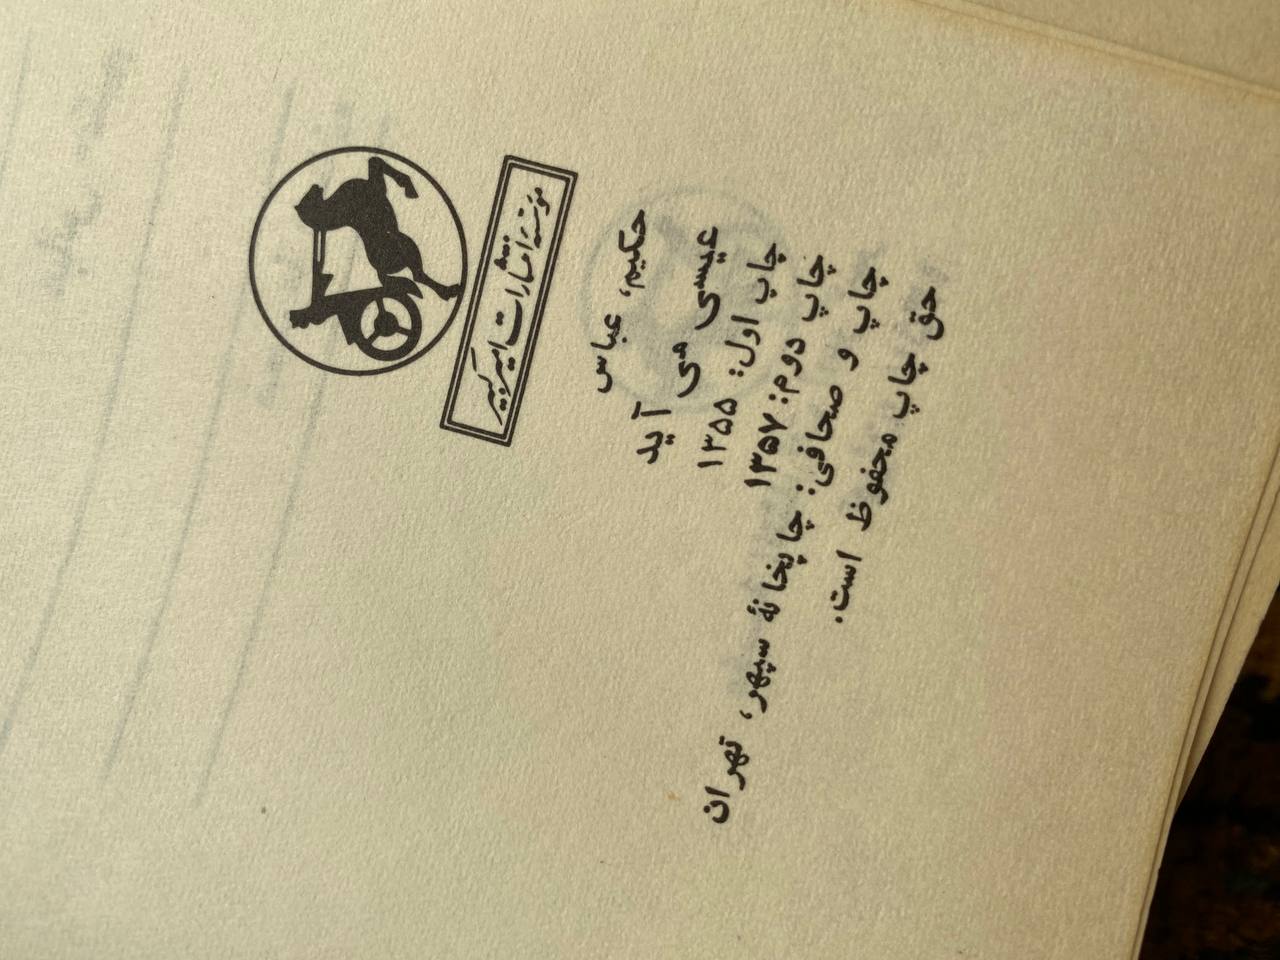 مؤسسه انتشارات امیرکبیر
حکیم، عباس
عیسی می آید
چاپ اول: ۱۳۵۵
چاپ دوم: ۱۳۵۷
چاپ و صحافی: چاپخانهٔ سپهر، تهران
حق چاپ محفوظ است.